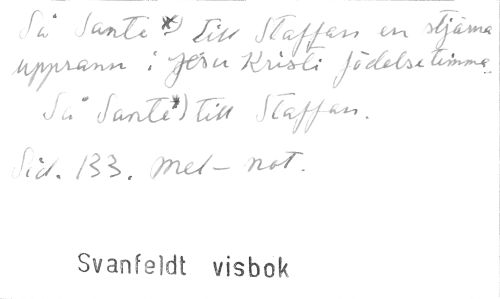 Så Sante*) till Staffan en stjärna
upprann i Jesu Kristi födelsetimma
Så Sante*) till Staffan.
Sid. 133. mel – not.
Svanfeldt visbok